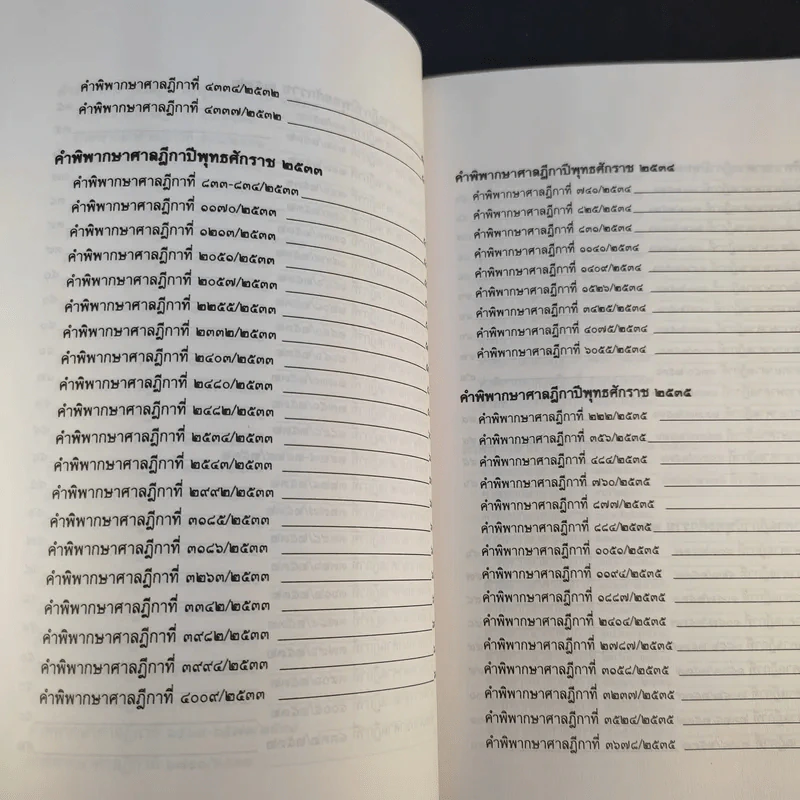 คำพิพากษาศาลฎีกาที่ ๔๓๓๔/๒๕๓๒
คำพิพากษาศาลฎีกาที่ ๔๓๓๗/๒๕๓๒
คำพิพากษาศาลฎีกาปีพุทธศักราช ๒๕๓๓
คำพิพากษาศาลฎีกาที่ ๘๓๓-๘๓๔/๒๕๓๓
คำพิพากษาศาลฎีกาที่ ๑๑๗๐/๒๕๓๓
คำพิพากษาศาลฎีกาที่ ๑๒๑๓/๒๕๓๓
คำพิพากษาศาลฎีกาที่ ๒๐๕๑/๒๕๓๓
คำพิพากษาศาลฎีกาที่ ๒๐๕๗/๒๕๓๓
คำพิพากษาศาลฎีกาที่ ๒๒๕๕/๒๕๓๓
คำพิพากษาศาลฎีกาที่ ๒๓๓๒/๒๕๓๓
คำพิพากษาศาลฎีกาที่ ๒๔๐๓/๒๕๓๓
คำพิพากษาศาลฎีกาที่ ๒๔๘๐/๒๕๓๓
คำพิพากษาศาลฎีกาที่ ๒๔๘๒/๒๕๓๓
คำพิพากษาศาลฎีกาที่ ๒๕๓๔/๒๕๓๓
คำพิพากษาศาลฎีกาที่ ๒๕๔๓/๒๕๓๓
คำพิพากษาศาลฎีกาที่ ๒๙๙๒/๒๕๓๓
คำพิพากษาศาลฎีกาที่ ๓๑๘๕/๒๕๓๓
คำพิพากษาศาลฎีกาที่ ๓๑๘๖/๒๕๓๓
คำพิพากษาศาลฎีกาที่ ๓๒๖๓/๒๕๓๓
คำพิพากษาศาลฎีกาที่ ๓๓๔๒/๒๕๓๓
คำพิพากษาศาลฎีกาที่ ๓๙๘๒/๒๕๓๓
คำพิพากษาศาลฎีกาที่ ๓๙๙๔/๒๕๓๓
คำพิพากษาศาลฎีกาที่ ๔๐๐๙/๒๕๓๓
คำพิพากษาศาลฎีกาปีพุทธศักราช ๒๕๓๔
คำพิพากษาศาลฎีกาที่ ๗๔๐/๒๕๓๔
คำพิพากษาศาลฎีกาที่ ๘๒๕/๒๕๓๔
คำพิพากษาศาลฎีกาที่ ๘๓๐/๒๕๓๔
คำพิพากษาศาลฎีกาที่ ๑๐๔๐/๒๕๓๔
คำพิพากษาศาลฎีกาที่ ๑๔๐๙/๒๕๓๔
คำพิพากษาศาลฎีกาที่ ๑๕๒๖/๒๕๓๔
คำพิพากษาศาลฎีกาที่ ๓๔๒๕/๒๕๓๔
คำพิพากษาศาลฎีกาที่ ๔๐๗๕/๒๕๓๔
คำพิพากษาศาลฎีกาที่ ๖๐๕๕/๒๕๓๔
คำพิพากษาศาลฎีกาปีพุทธศักราช ๒๕๓๕
คำพิพากษาศาลฎีกาที่ ๒๒๒/๒๕๓๕
คำพิพากษาศาลฎีกาที่ ๓๕๖/๒๕๓๕
คำพิพากษาศาลฎีกาที่ ๔๘๔/๒๕๓๕
คำพิพากษาศาลฎีกาที่ ๗๖๐/๒๕๓๕
คำพิพากษาศาลฎีกาที่ ๘๗๗/๒๕๓๕
คำพิพากษาศาลฎีกาที่ ๘๘๔/๒๕๓๕
คำพิพากษาศาลฎีกาที่ ๑๐๕๑/๒๕๓๕
คำพิพากษาศาลฎีกาที่ ๑๑๙๔/๒๕๓๕
คำพิพากษาศาลฎีกาที่ ๑๘๘๗/๒๕๓๕
คำพิพากษาศาลฎีกาที่ ๒๔๑๔/๒๕๓๕
คำพิพากษาศาลฎีกาที่ ๒๗๘๗/๒๕๓๕
คำพิพากษาศาลฎีกาที่ ๓๑๕๘/๒๕๓๕
คำพิพากษาศาลฎีกาที่ ๓๒๓๗/๒๕๓๕
คำพิพากษาศาลฎีกาที่ ๓๕๒๔/๒๕๓๕
คำพิพากษาศาลฎีกาที่ ๓๖๗๘/๒๕๓๕